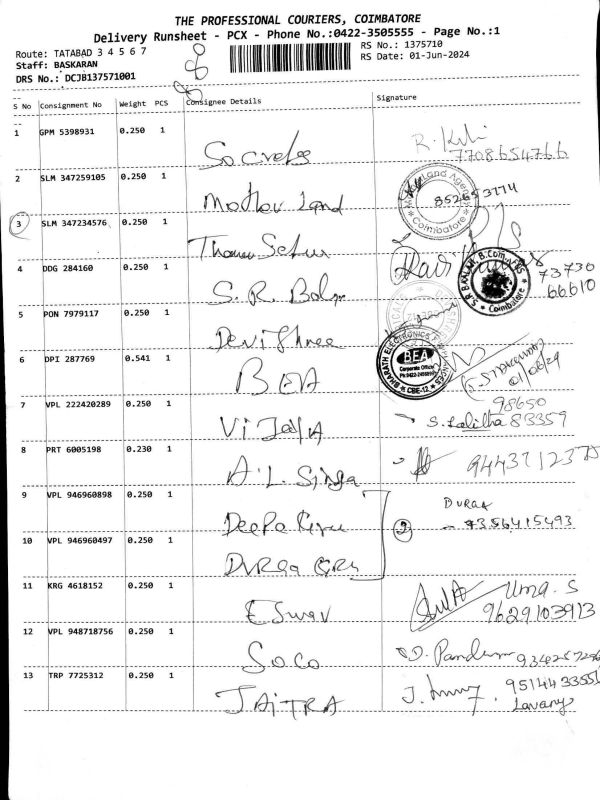 THE PROFESSIONAL COURIERS, COIMBATORE
Delivery Runsheet - PCX - Phone No.:0422-3505555 - Page No.:1
Route: TATABAD 3 4 5 6 7
RS No.: 1375710
Staff: BASKARAN
RS Date: 01-Jun-2024
DRS No.: DCJB137571001
S No Consignment No Weight PCS Consignee Details Signature
1 GPM 5398931 0.250 1 Socrates R. 7708654766
2 SLM 347259105 0.250 1 Mother Land
Coimbatore
3 SLM 347234576 0.250 1
4 DDG 284160 0.250 1 S. R. 73730
66610
Coimbatore
5 PON 7979117 0.250 1 Devi Shree
BHARATH ELECTRONICS
BEA
CBE-12
6 DPI 287769 0.541 1 BEA
01/06/24
7 VPL 222420289 0.250 1 Vijaya S. Lalitha 98650
83359
8 PRT 6005198 0.230 1 A. L.
9 VPL 946960898 0.250 1 Deepa
DURGA
2 7356415493
10 VPL 946960497 0.250 1 DURGA
11 KRG 4618152 0.250 1 Eswar Uma. S
9629103913
12 VPL 948718756 0.250 1 Soco
13 TRP 7725312 0.250 1 JAITRA J.